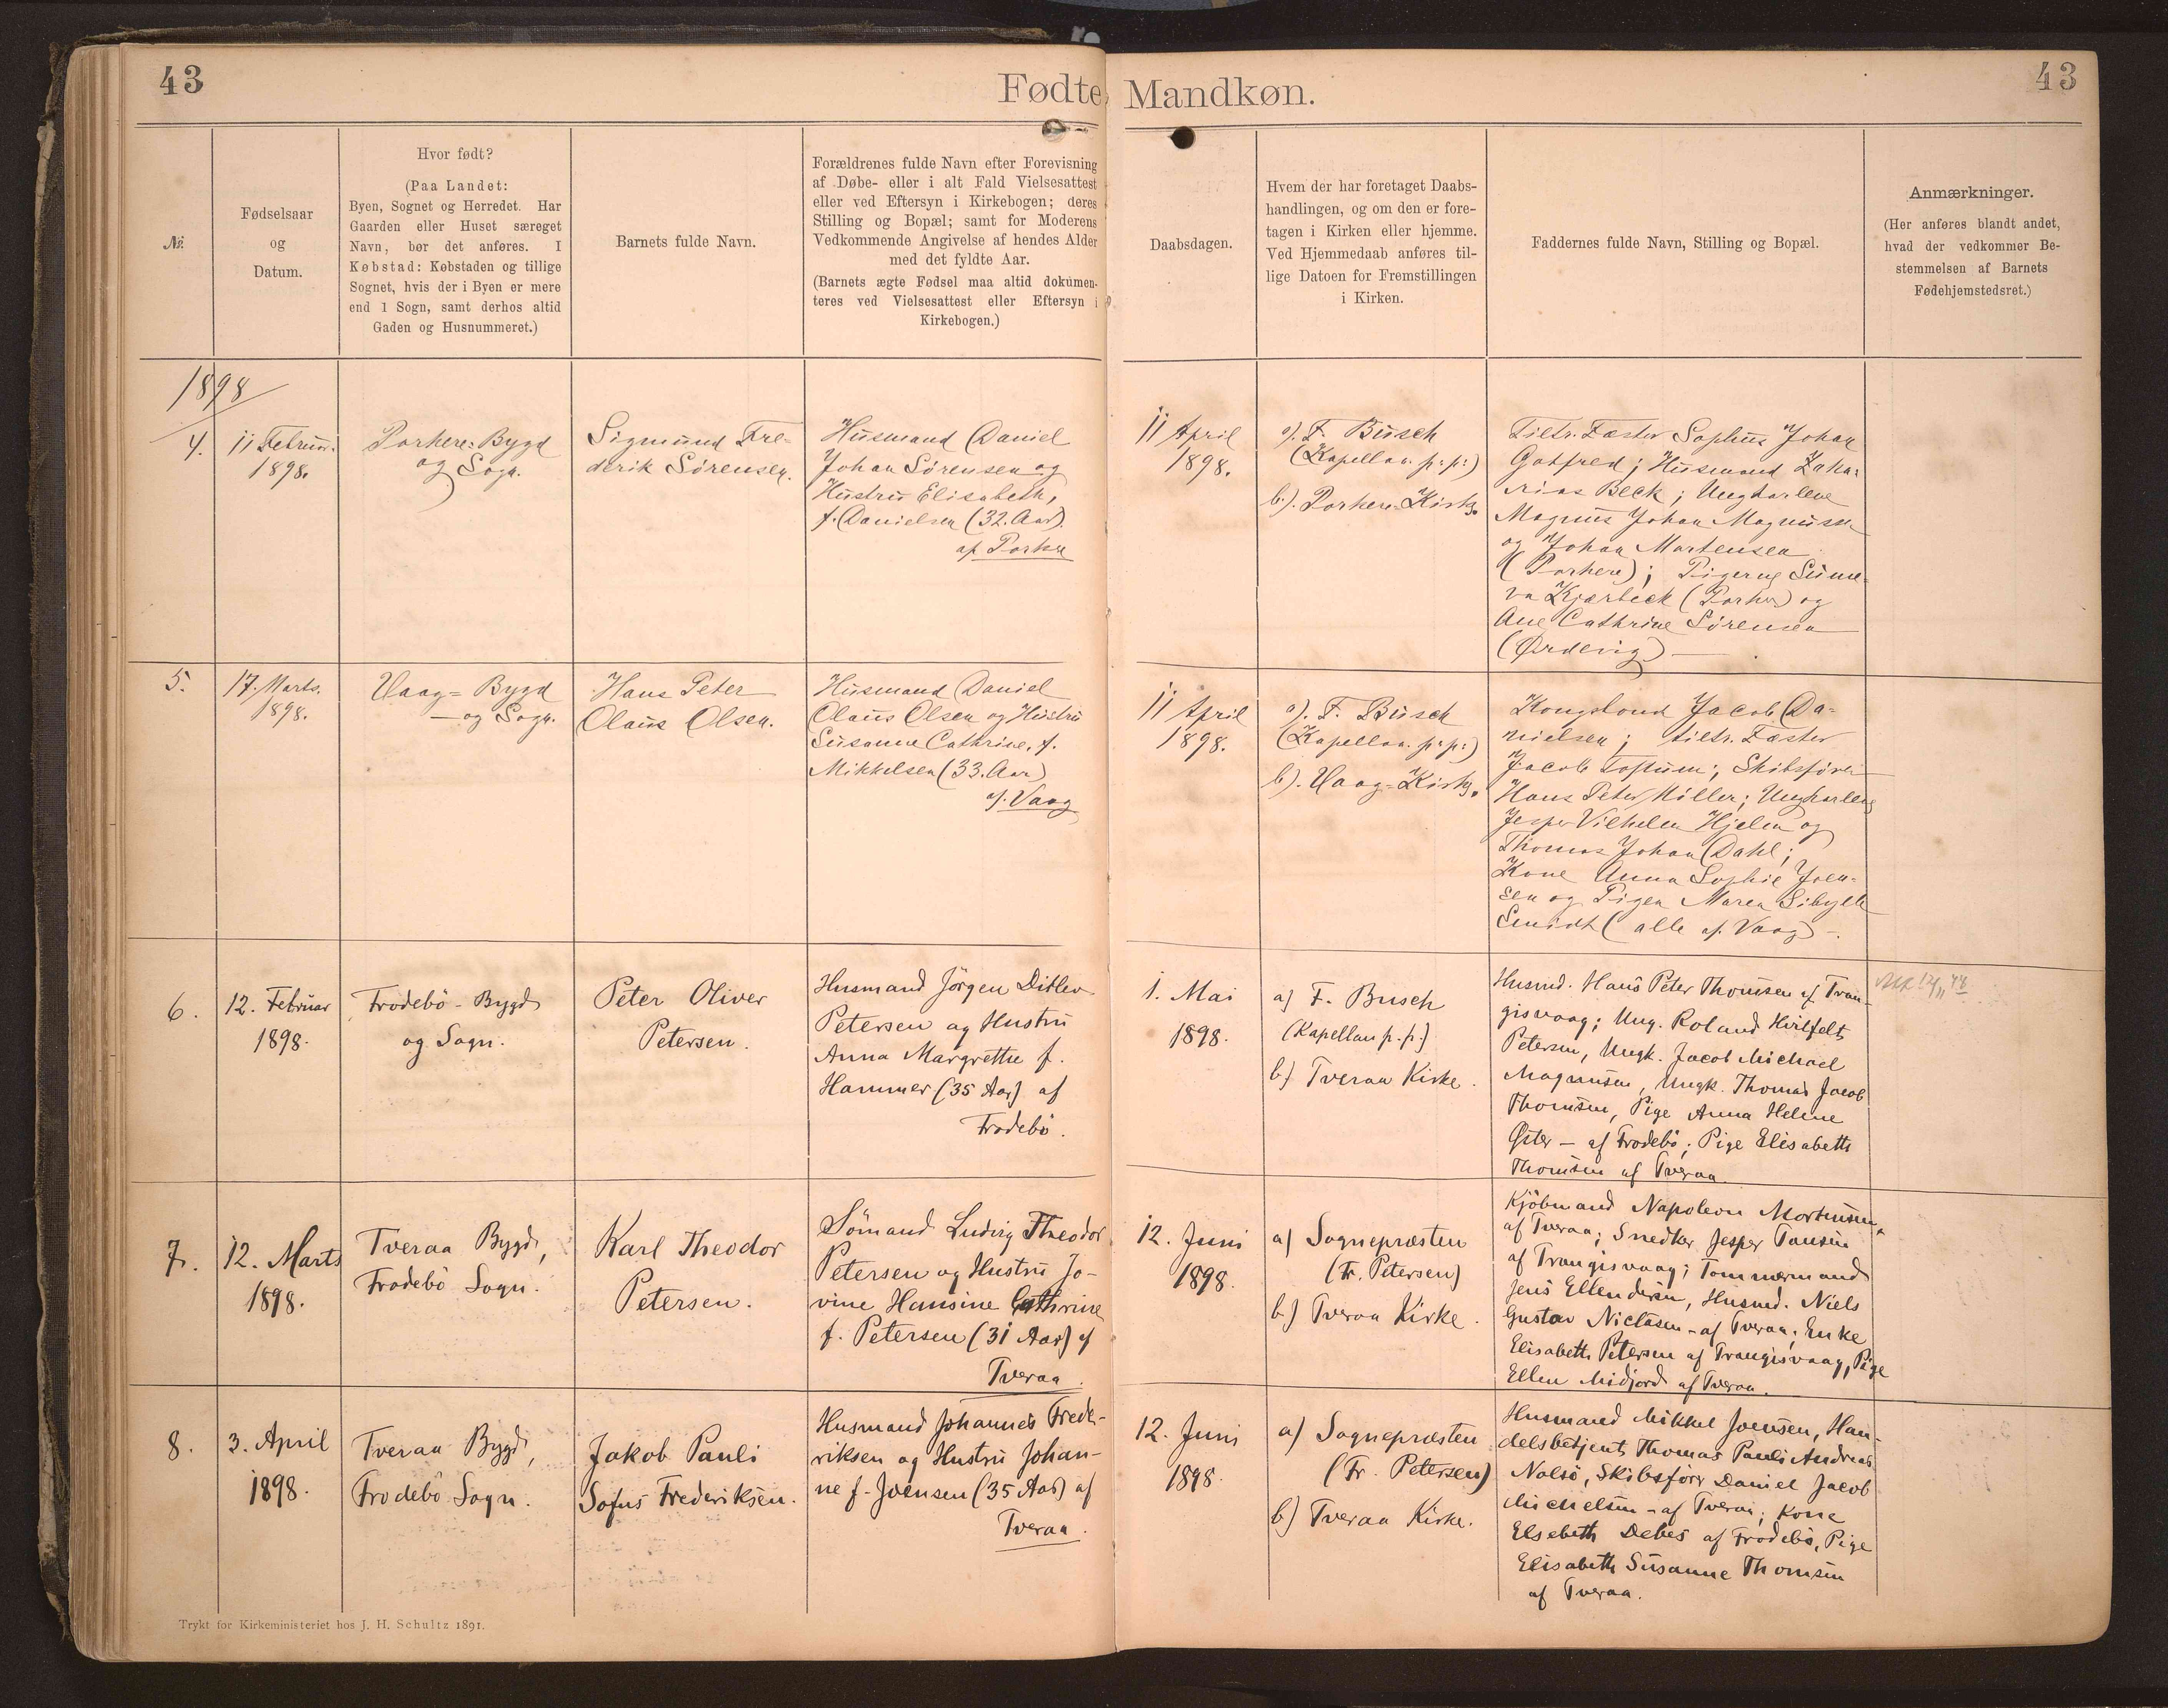 43
Fødte, Mandkøn.
43
№.
Fødselsaar
og
Datum.
Hvor født?
(Paa Landet:
Byen, Sognet og Herredet. Har
Gaarden eller Huset særeget
Navn, bør det anføres. I
Købstad: Købstaden og tillige
Sognet, hvis der i Byen er mere
end 1 Sogn, samt derhos altid
Gaden og Husnummeret.)
Barnets fulde Navn.
Forældrenes fulde Navn efter Forevisning
af Døbe- eller i alt Fald Vielsesattest
eller ved Eftersyn i Kirkebogen; deres
Stilling og Bopæl; samt for Moderens
Vedkommende Angivelse af hendes Alder
med det fyldte Aar.
(Barnets ægte Fødsel maa altid dokumen-
teres ved Vielsesattest eller Eftersyn i
Kirkebogen.)
Daabsdagen.
Hvem der har foretaget Daabs-
handlingen, og om den er fore-
tagen i Kirken eller hjemme.
Ved Hjemmedaab anføres til-
lige Datoen for Fremstillingen
i Kirken.
Faddernes fulde Navn, Stilling og Bopæl.
Anmærkninger.
(Her anføres blandt andet,
hvad der vedkommer Be-
stemmelsen af Barnets
Fødehjemstedsret.)
1898
4.
11 Februar
1898.
Porkere=Bygd
og Sogn.
Sigmund Fre=
derik Sørensen.
Husmand Daniel
Johan Sørensen og
Hustru Elisabeth,
f. Danielsen (32. Aar).
af Porkere
11 April
1898.
a). F. Busch
(Kapellan. p:p:)
b). Porkere=Kirke.
Fæster Sophus Johan
Gotfred; Husmand Zaka=
rias Beck; Ungkarlene
Magnus Johan Magnussen
og Johan Mortensen
(Porkere); Pigerne Sunne=
va Kjærbeck (Porkere) og
Ane Cathrine Sørensen
(Ørdevig) —
5.
17. Marts.
1898.
Vaag= Bygd
— og Sogn.
Hans Peter
Olaus Olsen.
Husmand Daniel
Olaus Olsen og Hustru
Susanne Cathrine, f.
Mikkelsen (33. Aar)
af. Vaag
11 April
1898.
a). F. Busch
(Kapellan. p:p:)
b). Vaag=Kirke.
Kongsbond Jacob Da=
nielsen; Fæster
Jacob Toftum; Skibsfører
Hans Peter Møller; Ungkarlene
Jesper Vilhelm Hjelm og
Thomas Johan Dahl;
Kone Anna Sophie Joen=
sen og Pigen Maren Sibylle
Smidt (alle af. Vaag) —.
6.
12. Februar
1898.
Frodebö - Bygd
og Sogn.
Peter Oliver
Petersen.
Husmand Jörgen Ditlev
Petersen og Hustru
Anna Margrethe f.
Hammer (35 Aar) af
Frodebö.
1. Mai
1898.
a) F. Busch
(Kapellan p.p.)
b) Tveraa Kirke.
Husmd. Hans Peter Thomsen af Tran-
gisvaag; Ung. Roland Hvitfelt
Petersen, Ungk. Jacob Michael
Magnusen, Ungk. Thomas Jacob
Thomsen, Pige Anna Helene
Öster — af Frodebö; Pige Elisabeth
Thomsen af Tveraa.
7.
12. Marts
1898.
Tveraa Bygd,
Frodebö Sogn.
Karl Theodor
Petersen.
Sömand Ludvig Theodor
Petersen og Hustru Jo-
vine Hansine Cathrine
f. Petersen (31 Aar) af
Tveraa.
12. Juni
1898.
a) Sognepræsten
(Fr. Petersen)
b) Tveraa Kirke.
Kjöbmand Napoleon Mortensen
af Tveraa; Snedker Jesper Pausen
af Trangisvaag; Tommermand
Jens Ellendersen, Husmd. Niels
Gustav Niclasen - af Tveraa; Enke
Elisabeth Petersen af Trangisvaag, Pige
Ellen Midjord af Tveraa.
8.
3. April
1898.
Tveraa Bygd,
Frodebö Sogn.
Jakob Pauli
Sofus Frederiksen.
Husmand Johannes Frede-
riksen og Hustru Johan-
ne f. Joensen (35 Aar) af
Tveraa.
12. Juni
1898.
a) Sognepræsten
(Fr. Petersen)
b) Tveraa Kirke.
Husmand Mikkel Joensen, Han-
delsbetjent Thomas Pauli Andreas
Nolsö, Skibsförer Daniel Jacob
Michelsen - af Tveraa; Kone
Elsebeth Debes af Frodebö, Pige
Elisabeth Susanne Thomsen
af Tveraa.
Trykt for Kirkeministeriet hos J. H. Schultz 1891.